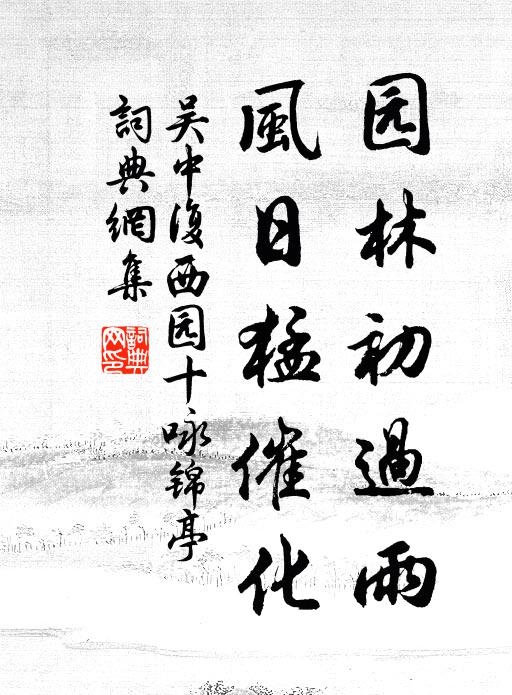 园林初過雨
風日猛催化
吴中復西园十咏錦亭
詞典網集
詞典网印